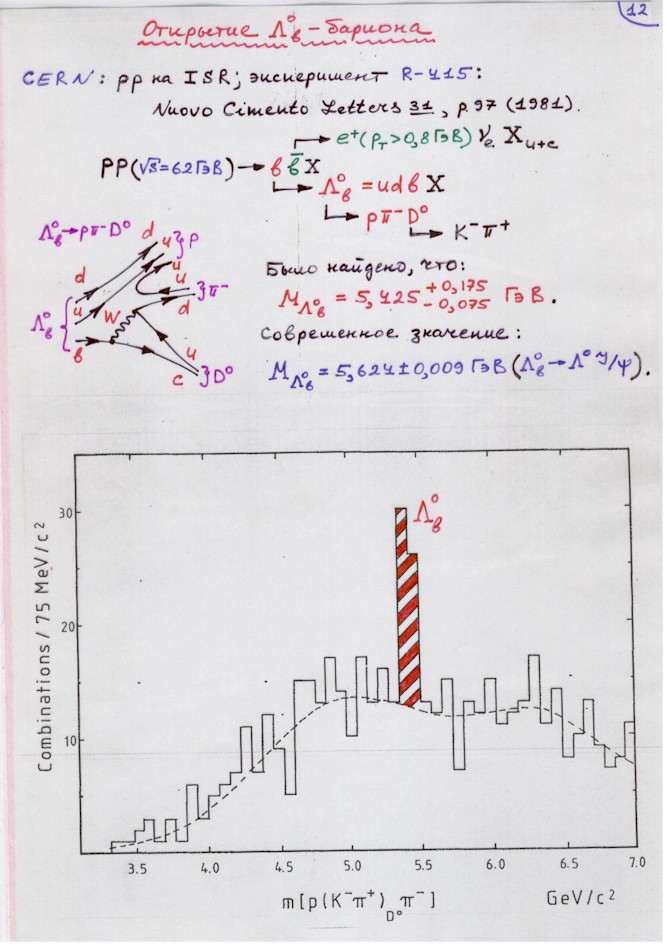 12
Открытие Λ⁰в-бариона
CERN: pp на ISR; эксперимент R-415:
Nuovo Cimento Letters 31, p 97 (1981).
e⁺(p_T>0,8 ГэВ) ν_e X_u+c
PP(√s=62 ГэВ) → в в̅ X
Λ⁰в = udв X
pπ⁻D⁰
K⁻π⁺
Λ⁰в→pπ⁻D⁰
d u u p
d u π⁻
Λ⁰в u W d
в u
c D⁰
Было найдено, что:
M_Λ⁰в = 5,425 +0,175 -0,075 ГэВ.
Современное значение:
M_Λ⁰в = 5,624±0,009 ГэВ (Λ⁰в→Λ⁰ J/ψ).
Combinations / 75 MeV/c²
30
20
10
Λ⁰в
3.5 4.0 4.5 5.0 5.5 6.0 6.5 7.0
m[p(K⁻π⁺)_D⁰ π⁻] GeV/c²